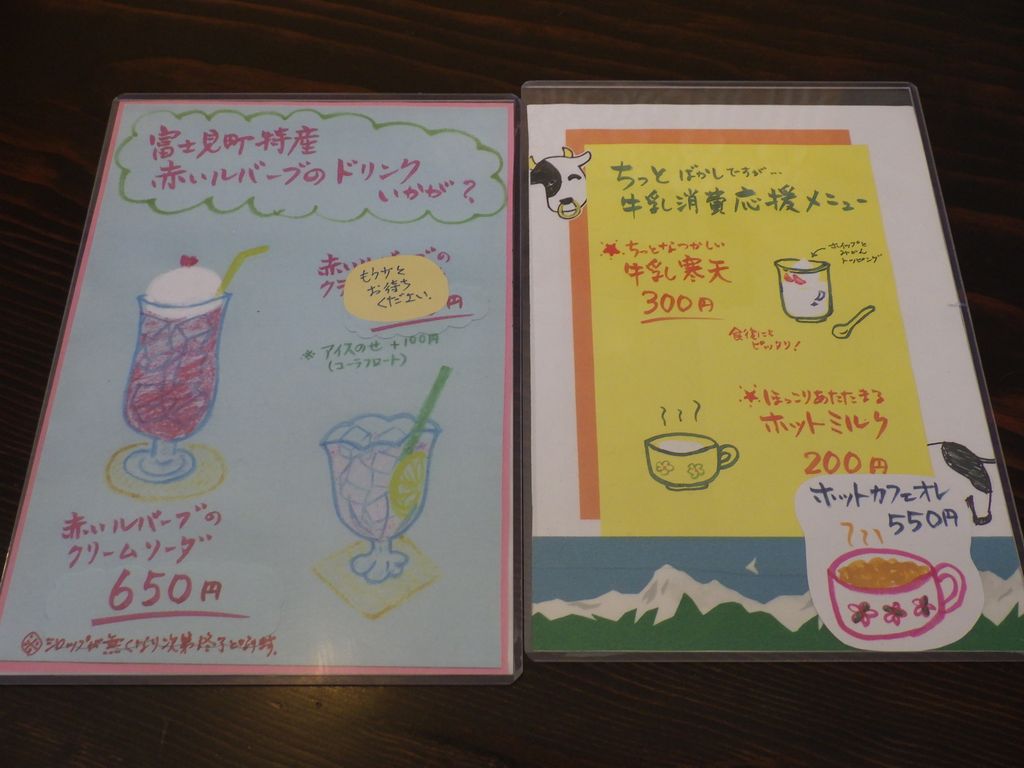 富士見町特産
赤いルバーブの ドリンク
いかが？
赤いルバーブの
ク
円
もう少々
お待ち
ください。
※ アイスのせ +100円
(コーラフロート)
赤いルバーブの
クリームソーダ
650円
シロップが無くなり次第終了となります。
ちっとばかしですが…
牛乳消費応援メニュー
ちっとなつかしい
牛乳寒天
300円
ホイップと
みかん
トッピング
食後にも
ピッタリ！
ほっこりあたたまる
ホットミルク
200円
ホットカフェオレ
550円